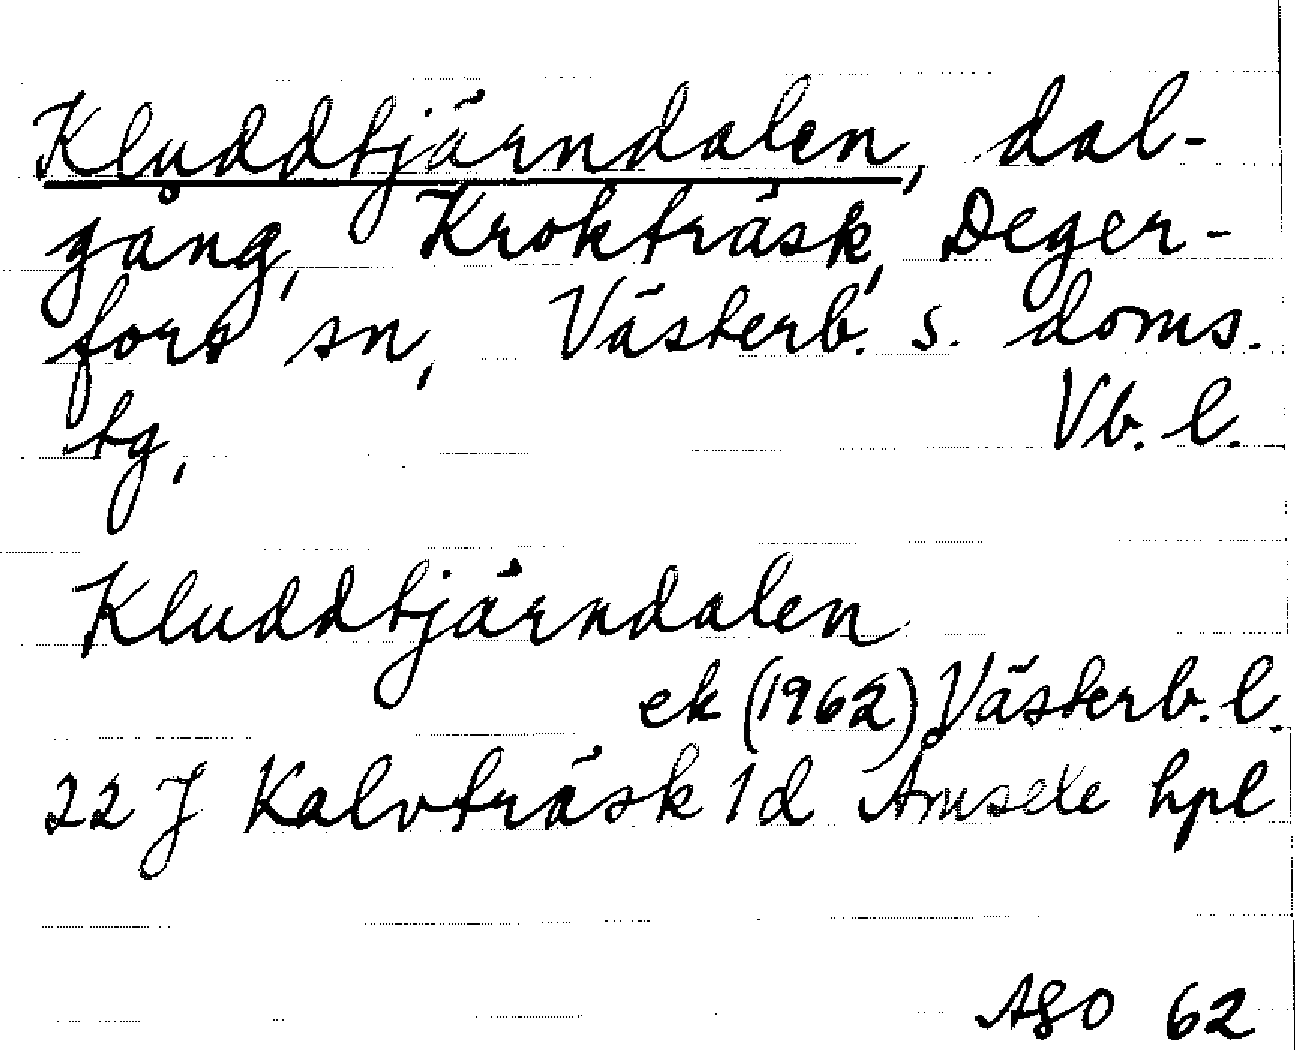 Kluddtjärndalen, dal-
gång, Krokträsk, Deger-
fors sn, Västerb. s. doms.
tg, Vb. l.
Kluddtjärndalen
ek (1962) Västerb. l.
22 J Kalvträsk 1d Åmsele hpl
ASO 62